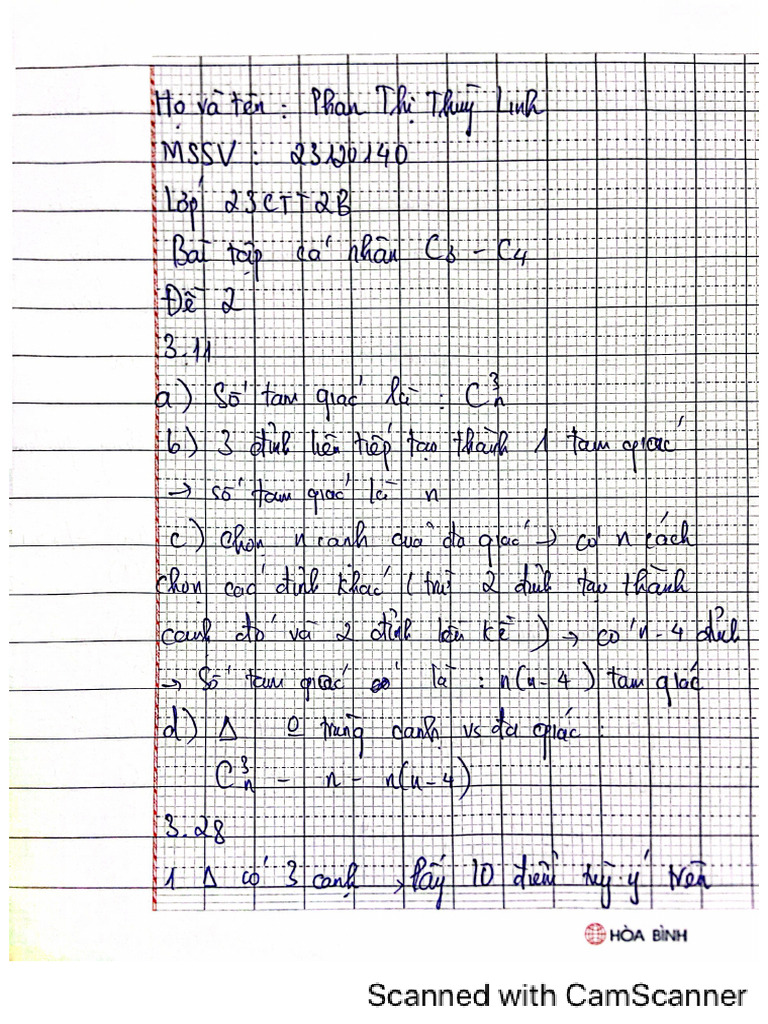 Họ và tên : Phan Thị Thuỳ Linh
MSSV : 23120140
Lớp 23CTT2B
Bài tập cá nhân C3 - C4
Đề 2
3.11
a) Số tam giác là : C³ₙ
b) 3 đỉnh liên tiếp tạo thành 1 tam giác
→ số tam giác là n
c) Chọn n cạnh của đa giác → có n cách
chọn các đỉnh khác ( trừ 2 đỉnh tạo thành
cạnh đó và 2 đỉnh liền kề ) → có n-4 đỉnh
→ Số tam giác là : n(n-4) tam giác
d) Δ o trùng cạnh vs đa giác :
C³ₙ - n - n(n-4)
3.28
1 Δ có 3 cạnh , lấy 10 điểm tuỳ ý trên
HÒA BÌNH
Scanned with CamScanner